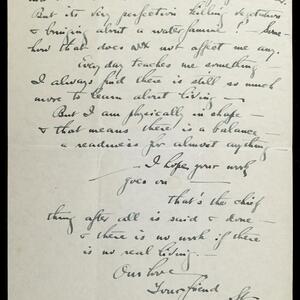 But its very perfection killing vegetation
& bringing about a water famine? Some-
how that does not affect me any.
Every day teaches me something
I always find there is still so much
more to learn about living —
But I am physically in shape —
& that means there is a balance —
a readiness for almost anything
— I hope your work
goes on
that's the chief
thing after all is said & done —
& there is no work if there
is no real living —
Our love
Your friend